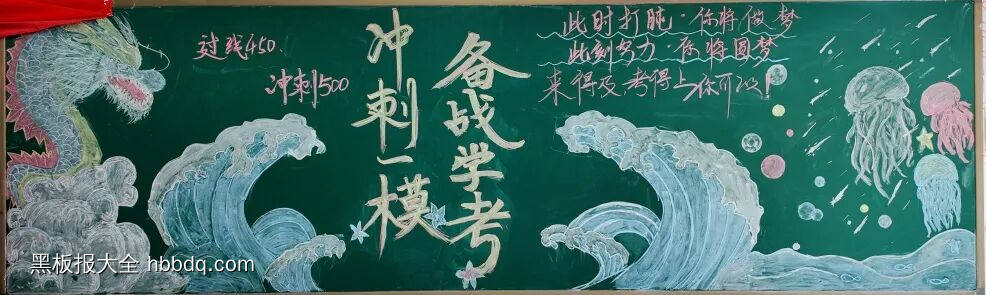 过线450
冲刺500
冲刺一模
备战学考
此时打盹·你将做梦
此刻努力·你将圆梦
来得及考得上你可以!
黑板报大全 hbbdq.com